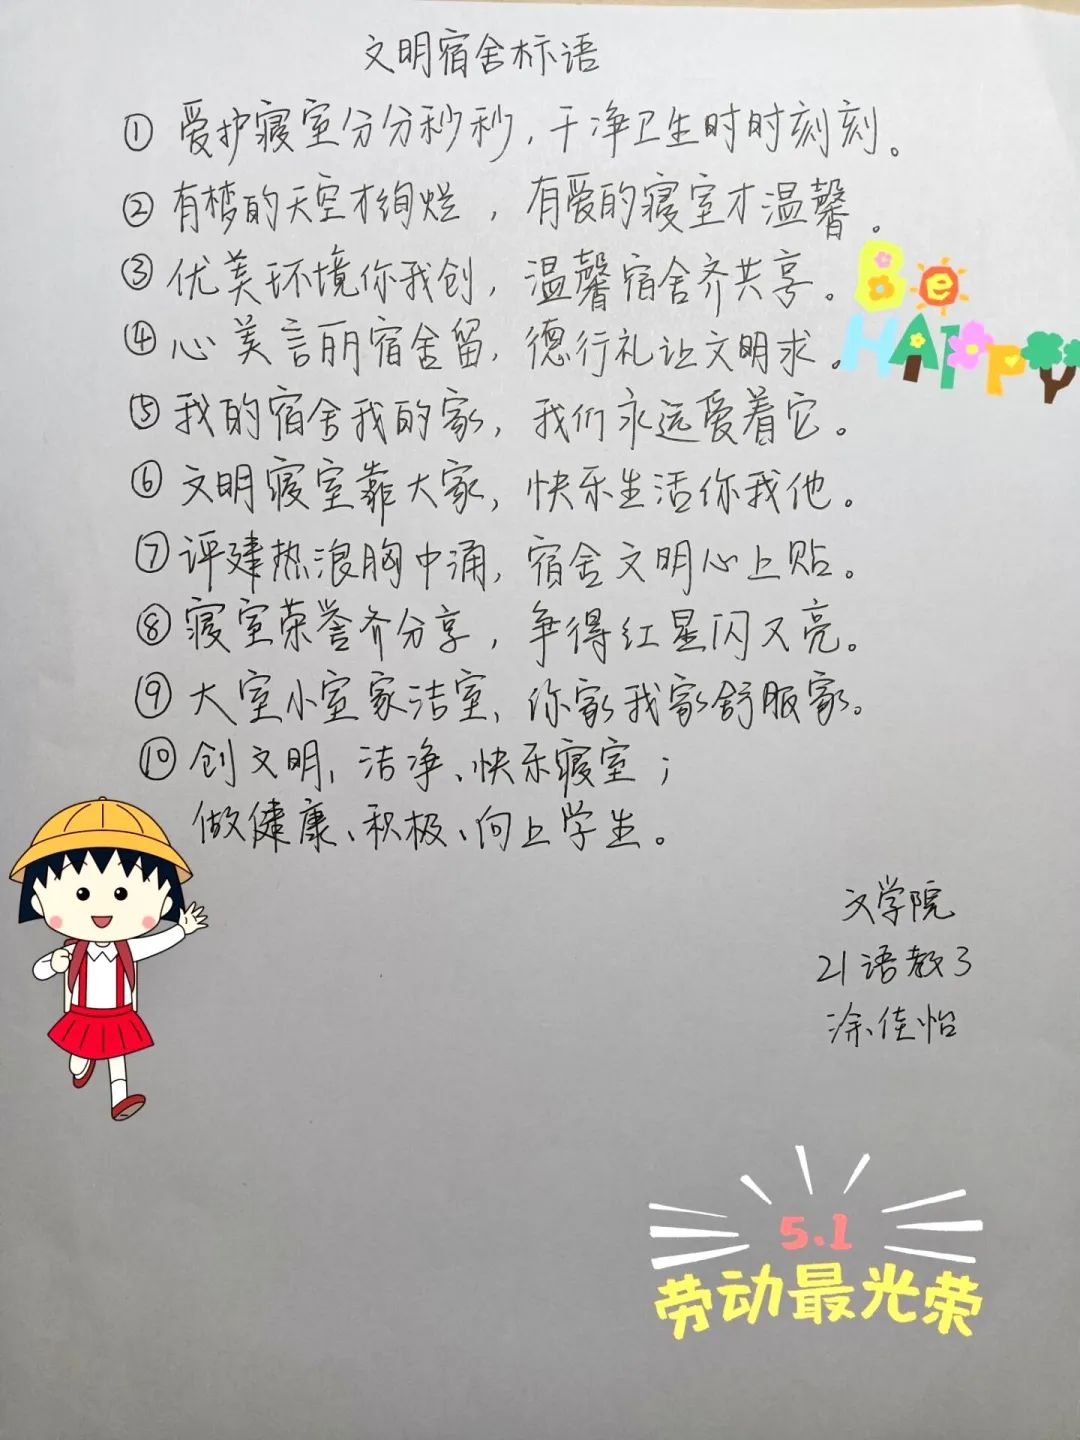 文明宿舍标语
① 爱护寝室分分秒秒，干净卫生时时刻刻。
② 有梦的天空才绚烂，有爱的寝室才温馨。
③ 优美环境你我创，温馨宿舍齐共享。
Be
HAPPY
④ 心美言丽宿舍留，德行礼让文明求。
⑤ 我的宿舍我的家，我们永远爱着它。
⑥ 文明寝室靠大家，快乐生活你我他。
⑦ 评建热浪胸中涌，宿舍文明心上贴。
⑧ 寝室荣誉齐分享，争得红星闪又亮。
⑨ 大室小室家洁室，你家我家舒服家。
⑩ 创文明、洁净、快乐寝室；
做健康、积极、向上学生。
文学院
21语教3
涂佳怡
5.1
劳动最光荣